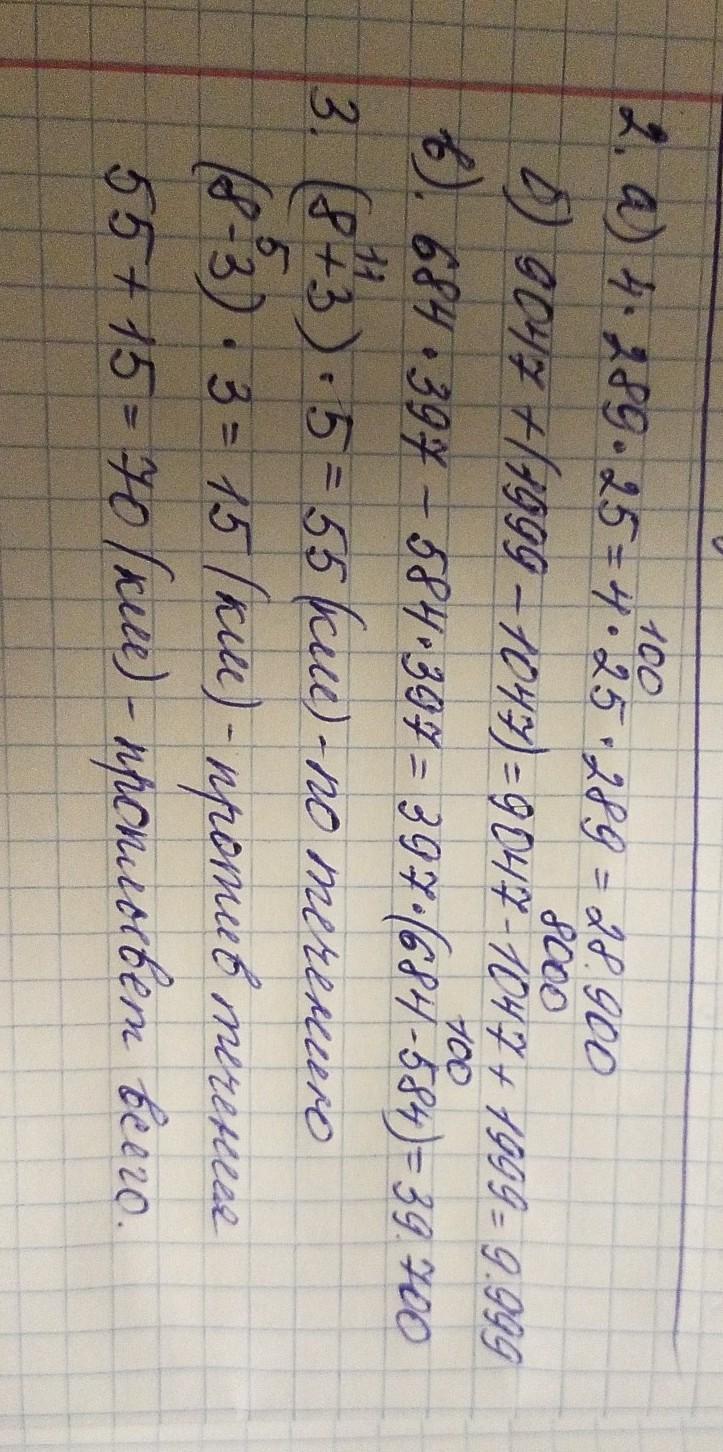 2. а) 4·289·25=4·25·289=28.900
100
б) 9047+(1999-1047)=9047-1047+1999=9.999
8000
в). 684·397-584·397=397·(684-584)=39.700
100
3. (8+3)·5=55(км)-по течению
11
(8-3)·3=15(км)-против течения
5
55+15=70(км)-проплывет всего.